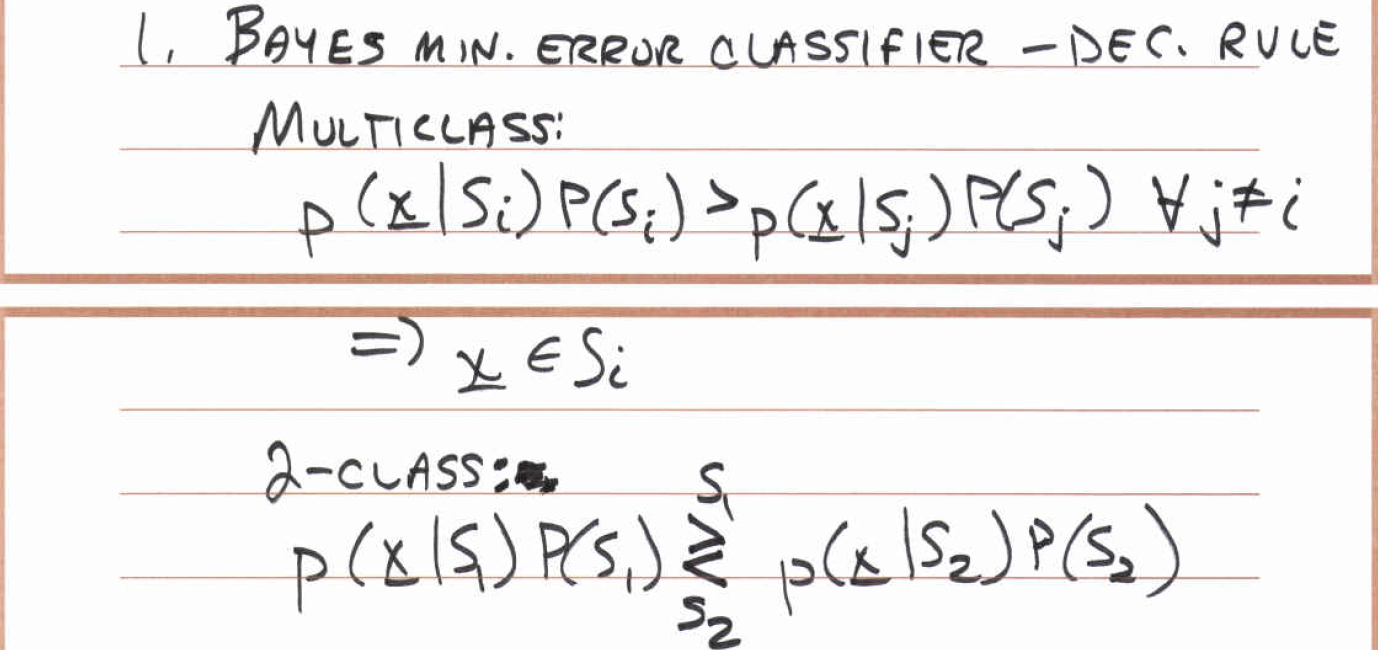 1. BAYES MIN. ERROR CLASSIFIER – DEC. RULE
MULTICLASS:
p(x̲|Sᵢ)P(Sᵢ) > p(x̲|Sⱼ)P(Sⱼ) ∀ j≠i
⇒ x̲ ∈ Sᵢ
2-CLASS:
p(x̲|S₁)P(S₁) ≷ p(x̲|S₂)P(S₂)
S₁
S₂